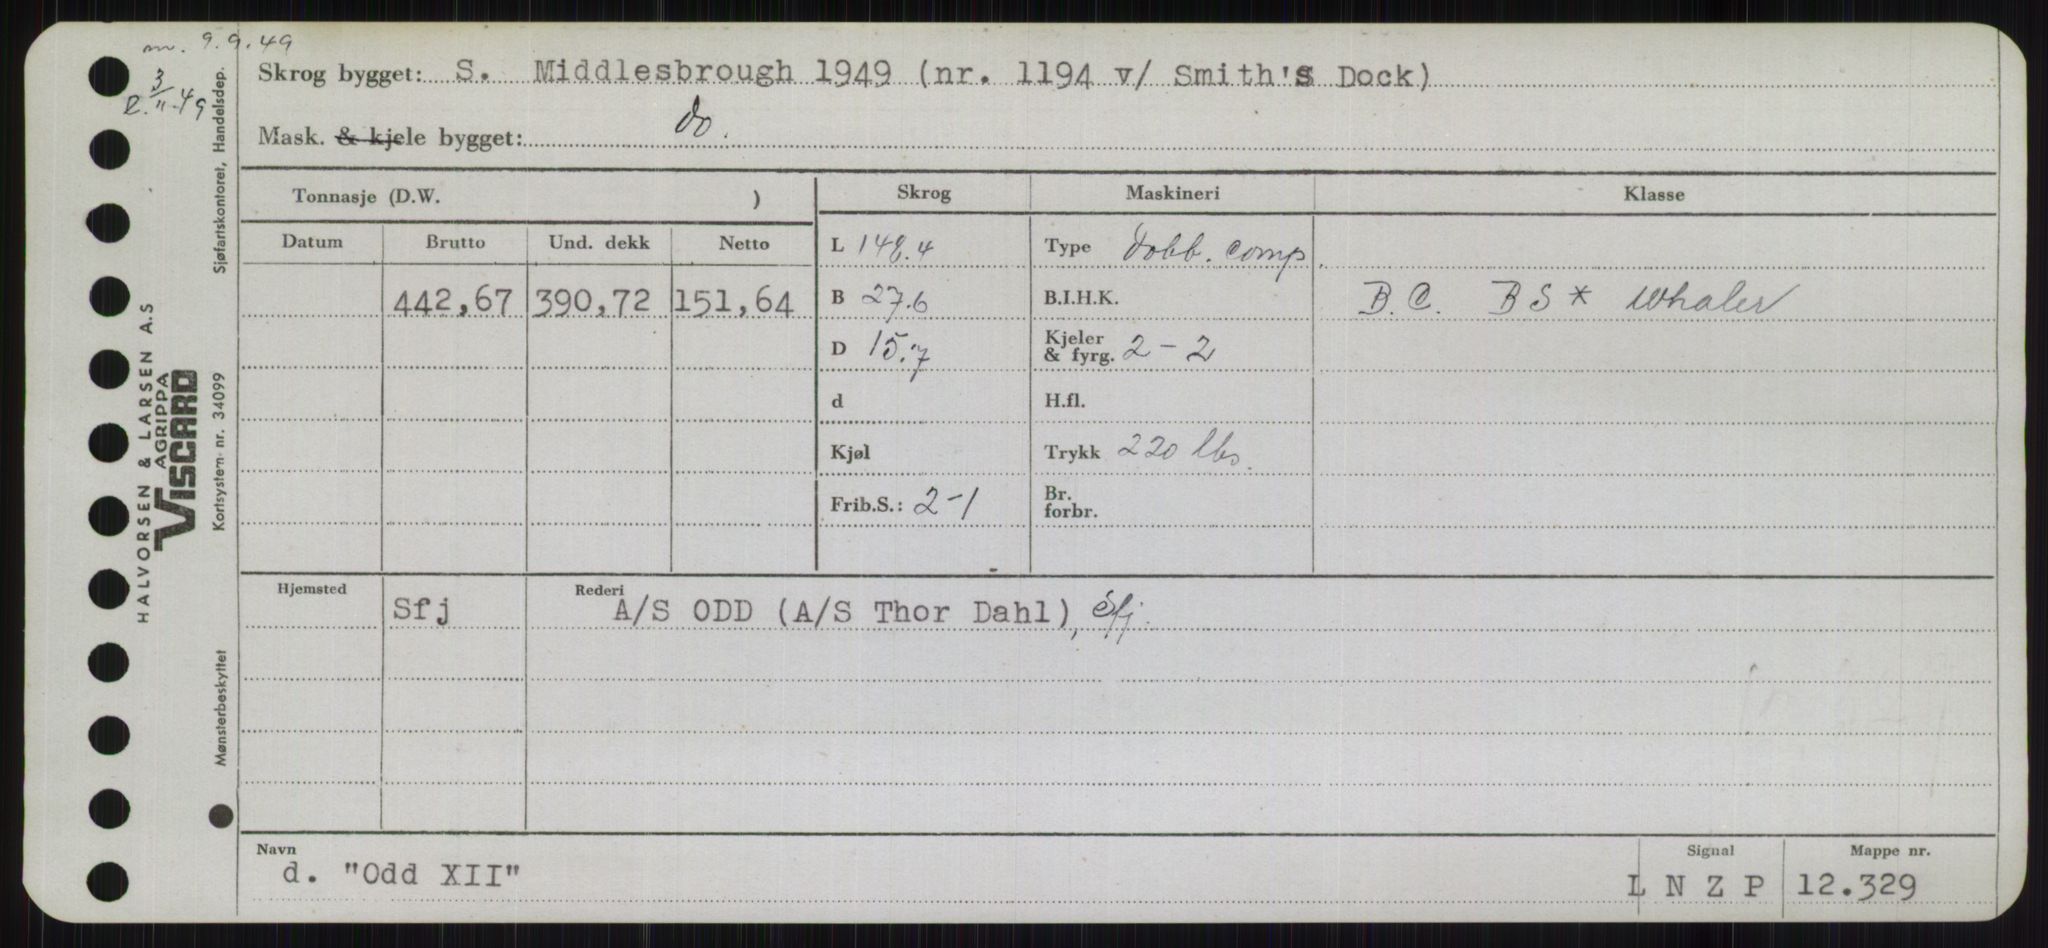 m. 9.9.49
R. 3/11-49
Skrog bygget: S. Middlesbrough 1949 (nr. 1194 v/ Smith's Dock)
Mask. & kjele bygget: do.
Tonnasje (D.W. )
Skrog
Maskineri
Klasse
Datum Brutto Und. dekk Netto
442,67 390,72 151,64
L 148.4
B 27.6
D 15.7
d
Kjøl
Frib.S.: 2-1
Type Dobb. comp.
B.I.H.K.
Kjeler
& fyrg. 2-2
H.fl.
Trykk 220 lbs.
Br.
forbr.
B.C. BS* Whaler
Hjemsted
Rederi
Sfj A/S ODD (A/S Thor Dahl), Sfj.
Navn
d. "Odd XII"
Signal
L N Z P
Mappe nr.
12.329
HALVORSEN & LARSEN A.S
AGRIPPA
VISCARD
Mønsterbeskyttet Kortsystem nr. 34099 Sjøfartskontoret, Handelsdep.